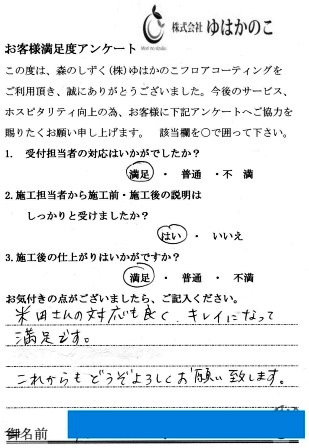 株式会社 ゆはかのこ
Mori no shizuku
お客様満足度アンケート
この度は、森のしずく(株)ゆはかのこフロアコーティングを
ご利用頂き、誠にありがとうございます。今後のサービス、
ホスピタリティ向上の為、お客様に下記アンケートへご協力を
賜りたくお願い申し上げます。 該当欄を○で囲って下さい。
1. 受付担当者の対応はいかがでしたか?
満足 ・ 普通 ・不 満
2.施工担当者から施工前・施工後の説明は
しっかりと受けましたか?
はい ・ いいえ
3.施工後の仕上がりはいかがですか?
満足 ・ 普通 ・ 不満
お気付きの点がございましたら、ご記入ください。
米田さんの対応も良く、キレイになって
満足です。
これからもどうぞよろしくお願い致します。
御名前